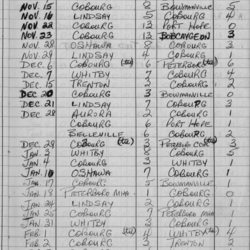 NOV. 15 COBOURG 8 BOWMANVILLE 5
NOV. 16 LINDSAY 5 COBOURG 4
NOV. 22 COBOURG 13 PORT HOPE 4
NOV. 23 COBOURG 13 BOBCAYGEON 3
NOV. 28 OSHAWA 8 COBOURG 3
NOV. 29 LINDSAY 4 COBOURG
DEC. 6 COBOURG 6 PETERBORO 6
DEC. 7 WHITBY 6 COBOURG 4
DEC. 15 TRENTON 3 COBOURG 2
DEC. 20 COBOURG 3 BOWMANVILLE 0
DEC. 21 LINDSAY 7 COBOURG 3
DEC. 28 AURORA 2 COBOURG 1
COBOURG 6 PORT HOPE 0
BELLEVILLE 6 COBOURG 2
DEC. 28 COBOURG 3 3
JAN. 3 WHITBY COBOURG 5
JAN. 4 COBOURG 3 WHITBY
JAN. 10 OSHAWA 7 COBOURG 1
JAN. 17 COBOURG 5 BOWMANVILLE 1
JAN. 18 COBOURG 1
JAN. 24 LINDSAY 2 COBOURG
JAN. 25 COBOURG 7 PETERBORO
JAN. 31 WHITBY COBOURG
FEB. 1 COBOURG 4 WHITBY 4
FEB. 2 COBOURG 3 TRENTON